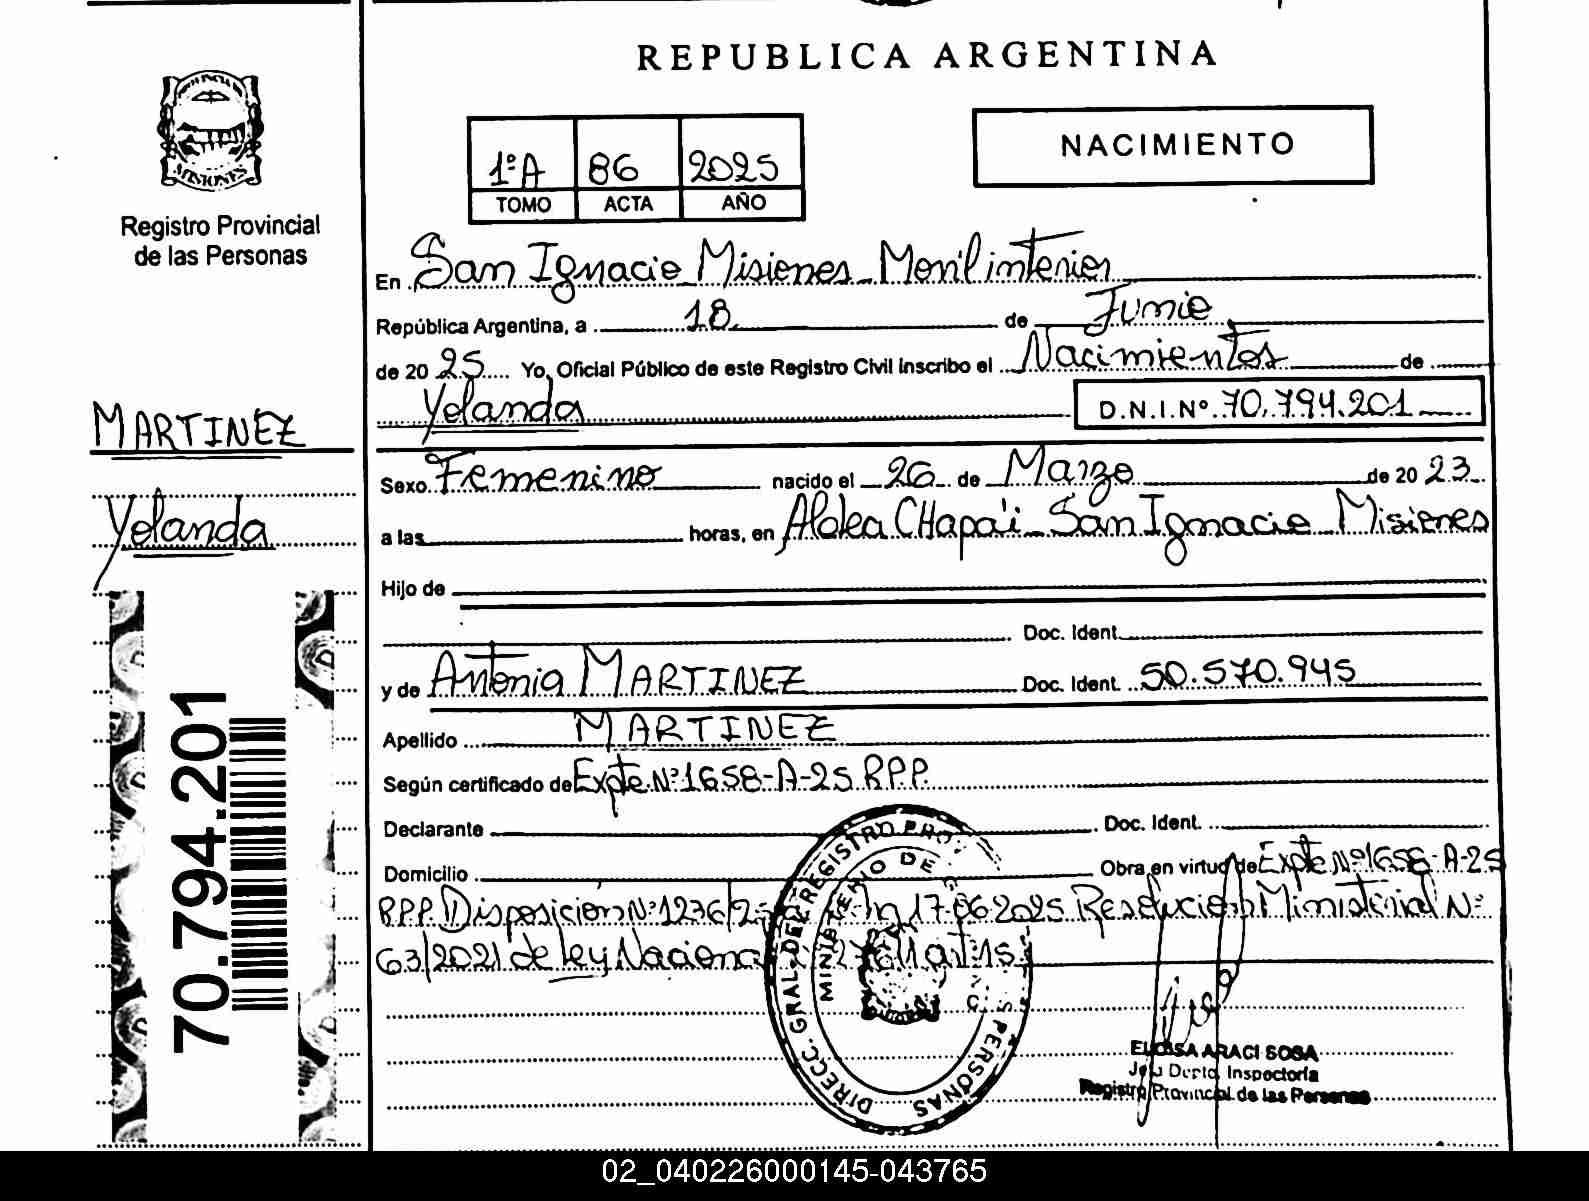 REPUBLICA ARGENTINA
MISIONES
Registro Provincial
de las Personas
1ºA 86 2025
TOMO ACTA AÑO
NACIMIENTO
En San Ignacio Misiones Movil interior
República Argentina, a 18 de Junio
de 2025 Yo, Oficial Público de este Registro Civil inscribo el Nacimientos de
Yolanda D.N.I.Nº 70.794.201
MARTINEZ
Yolanda
70.794.201
Sexo Femenino nacido el 26 de Marzo de 2023
a las horas, en Aldea CHapa'i San Ignacio Misiones
Hijo de
Doc. Ident.
y de Antonia MARTINEZ Doc. Ident. 50.570.945
Apellido MARTINEZ
Según certificado de Expte Nº1658-A-25 R.P.P.
Declarante Doc. Ident.
Domicilio Obra en virtud de Expte Nº1658-A-25
R.P.P. Disposición Nº1236/25 17-06-2025 Resolución Ministerial Nº
63/2021 de ley Nacional
DIRECC. GRAL. DEL REGISTRO PERSONAS
MINISTERIO DE
ELOISA ARACI SOSA
Jefa Depto. Inspectoría
Registro Provincial de las Personas
02_040226000145-043765